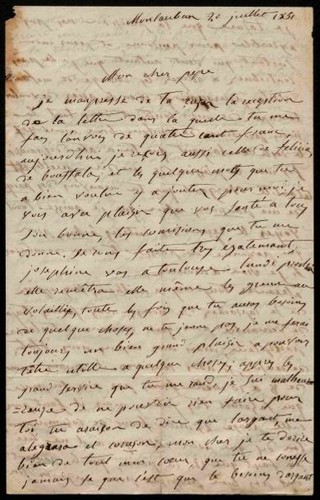 Montauban 20 juillet 1851
Mon cher pepe
je m'aupresse de ta cuser la reception
de la lettre dans la quelle tu me
fais l'anvois de quatre cent franc,
aujourd'hui je reçois aussi celle de felicia,
de bouffalo, et les quelques mots que tu
a bien voulue y ajouter pour moi, je
vois avec plaisir que vos santé a tous
son bonne, les comisions que tu me
donne. je vous faite tres egalement
josephine vas a toulouse lundi prochin
elle remetra elle même les
toute les fois que tu auras besoins
de quelque choses, ne te jeune pas, je me ferais
toujours un bien grand plaisir a pouvois
t'être utille a quelque choses, apprès les
grand service que tu me rand, je suis malheu-
reuse de ne pouvoir rien faire pour
toi tu a raison de dire que l'argant me
et mon cher je te desire
bien de tout mon coeur que tu ne conesse
jamais se que s'est que le besoins d'argant